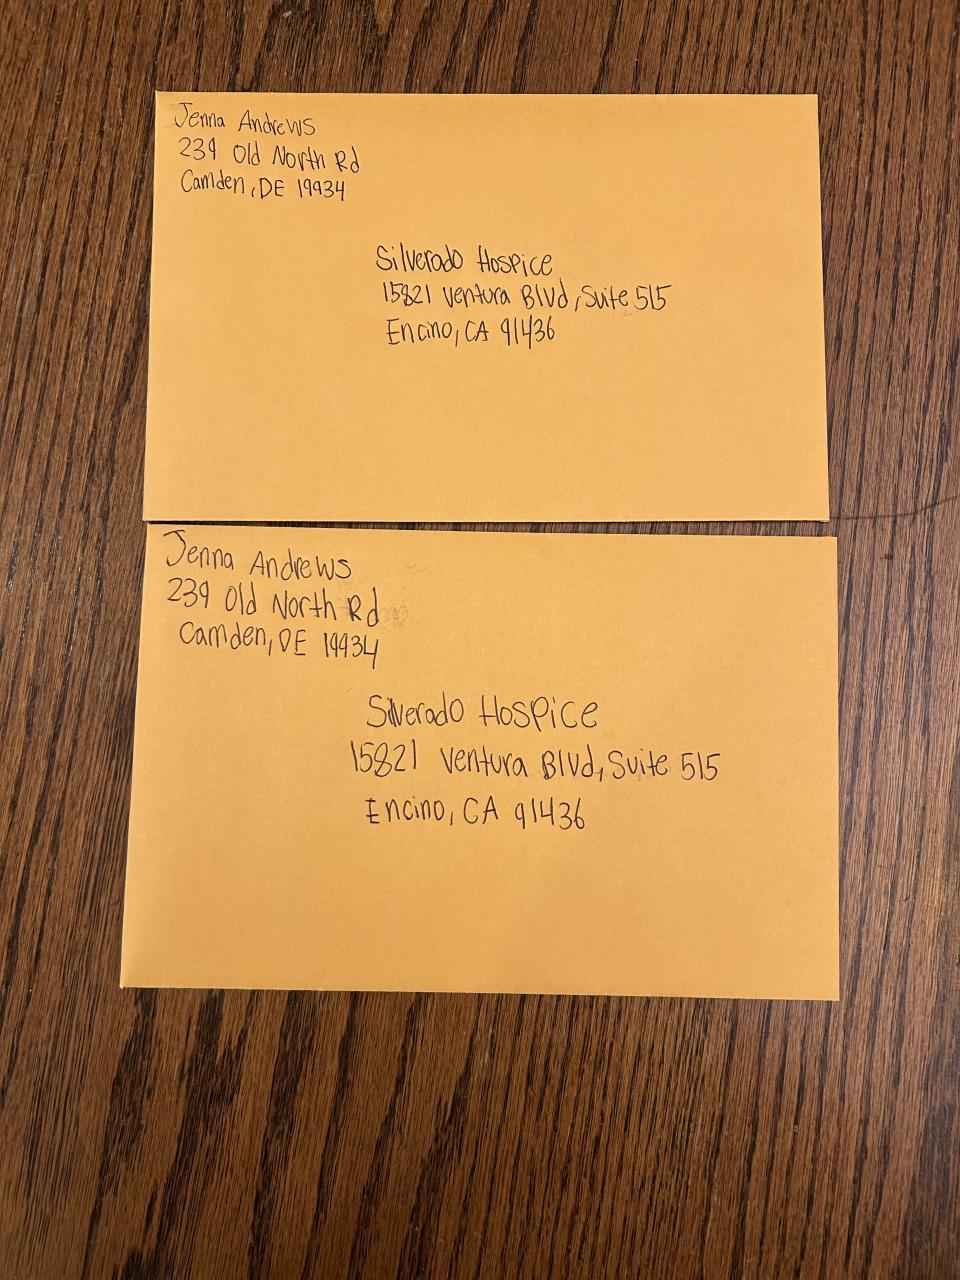 Jenna Andrews
239 Old North Rd
Camden, DE 19934
Silverado Hospice
15821 Ventura Blvd, Suite 515
Encino, CA 91436
Jenna Andrews
239 Old North Rd
Camden, DE 19934
Silverado Hospice
15821 Ventura Blvd, Suite 515
Encino, CA 91436